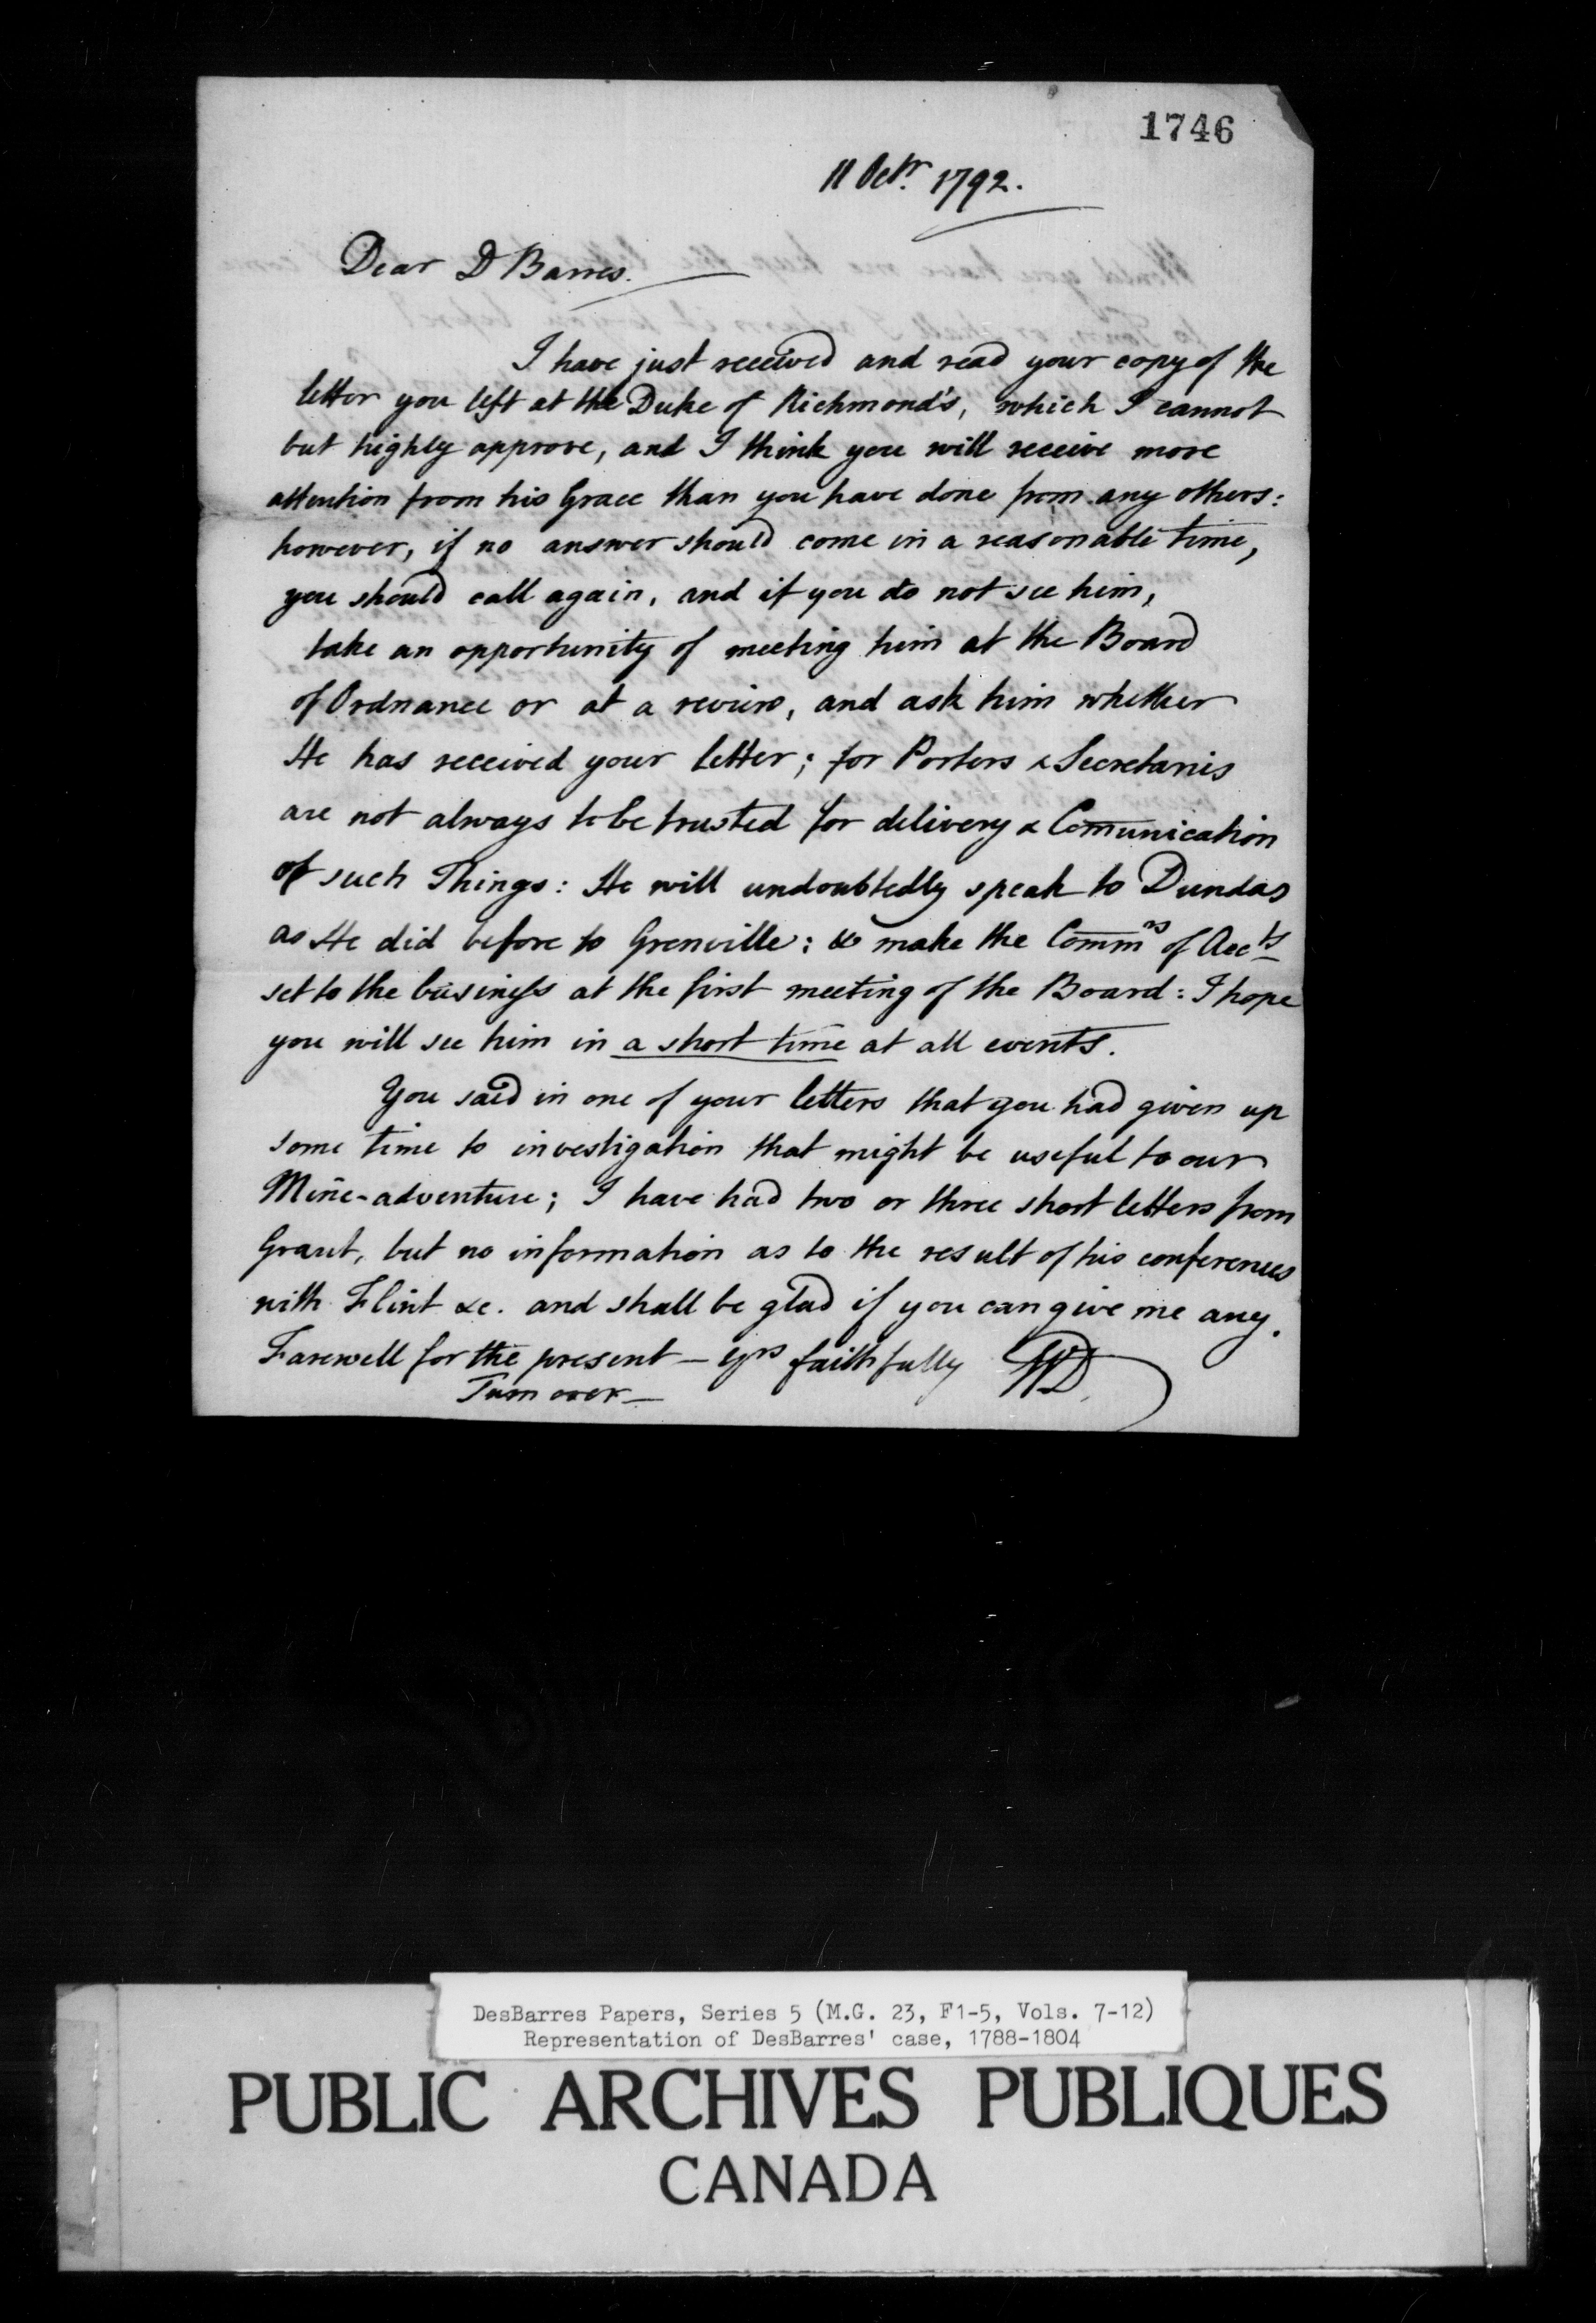 1746
11 Octr. 1792.
Dear D Barres.
I have just received and read your copy of the
letter you left at the Duke of Richmond's, which I cannot
but highly approve, and I think you will receive more
attention from his Grace than you have done from any others:
however, if no answer should come in a reasonable time,
you should call again, and if you do not see him,
take an opportunity of meeting him at the Board
of Ordnance or at a review, and ask him whether
He has received your letter; for Porters & Secretaries
are not always to be trusted for delivery & Comunication
of such Things: He will undoubtedly speak to Dundas
as He did before to Grenville: & make the Commrs of Accts
set to the business at the first meeting of the Board: I hope
you will see him in a short time at all events.
You said in one of your letters that you had given up
some time to investigation that might be useful to our
Mine-adventure; I have had two or three short letters from
Grant, but no information as to the result of his conferences
with Flint &c. and shall be glad if you can give me any.
Farewell for the present — yrs faithfully WD
Turn over —
DesBarres Papers, Series 5 (M.G. 23, F1-5, Vols. 7-12)
Representation of DesBarres' case, 1788-1804
PUBLIC ARCHIVES PUBLIQUES
CANADA